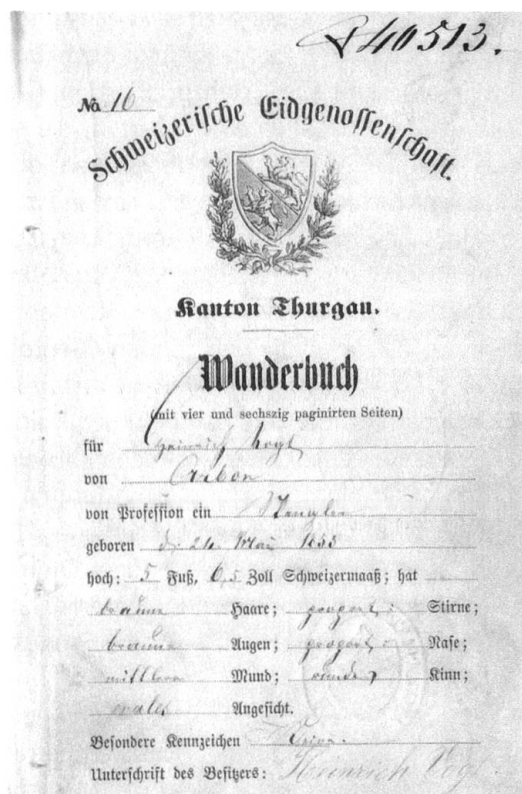 40513.
No 16
Schweizerische Eidgenossenschaft.
Kanton Thurgau.
Wanderbuch
(mit vier und sechszig paginirten Seiten)
für Heinrich Vogt
von Arbon
von Profession ein Spengler
geboren d. 26. Mai 1853
hoch: 5 Fuß, 6,5 Zoll Schweizermaaß; hat
braune Haare; proport: Stirne;
braune Augen; proport Nase;
mittlern Mund; rundes Kinn;
ovales Angesicht.
Besondere Kennzeichen
Unterschrift des Besitzers: Heinrich Vogt